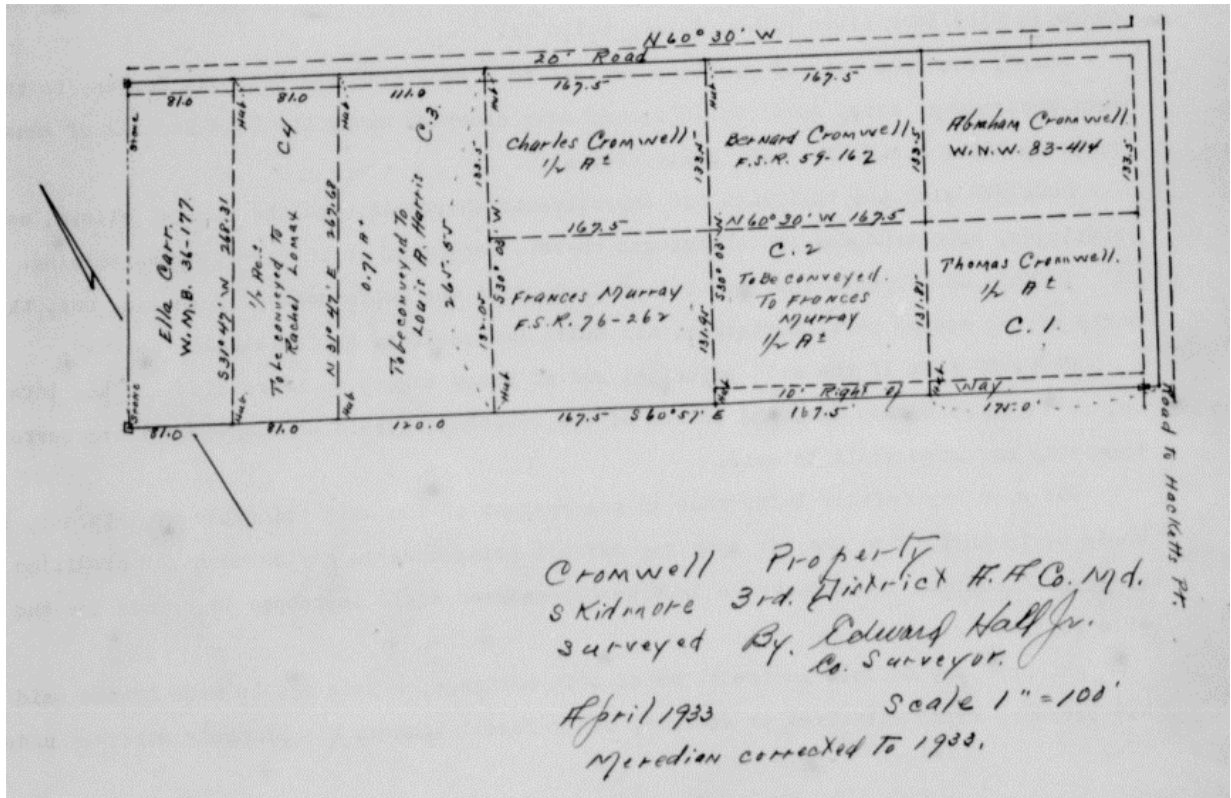 N 60° 30' W
20' Road
81.0
81.0
111.0
167.5
167.5
Stone
Hub.
Hub.
Hub
Hub.
Ella Carr.
W.M.B. 36-177.
S 31° 47' W 268.31
C 4
1/2 Ac.±
To be conveyed To
Rachel Lomax
N 31° 47' E 267.68
C.3.
0.71 A.
To be conveyed To
Louis R. Harris
265.55
133.5
S 30° 03' W.
132.05
Charles Cromwell
1/2 A±
167.5
Frances Murray
F.S.R. 76-262
133.5
S 30° 03' W.
131.95
Bernard Cromwell
F.S.R. 59-162
N 60° 30' W 167.5
C.2
To be conveyed.
To Frances
Murray
1/2 A±
133.5
131.85
Abraham Cromwell
W.N.W. 83-414
133.5
Thomas Cromwell.
1/2 A±
C.1.
Stone
Hub.
Hub
Hub
Hub
Hub.
10' Right of Way.
81.0
81.0
120.0
167.5 S 60° 57' E 167.5
Road to Hacketts Pt.
Cromwell Property
Skidmore 3rd. District A.A Co. Md.
Surveyed By. Edward Hall Jr.
Co. Surveyor.
April 1933 Scale 1" = 100'
Meredian corrected To 1933.